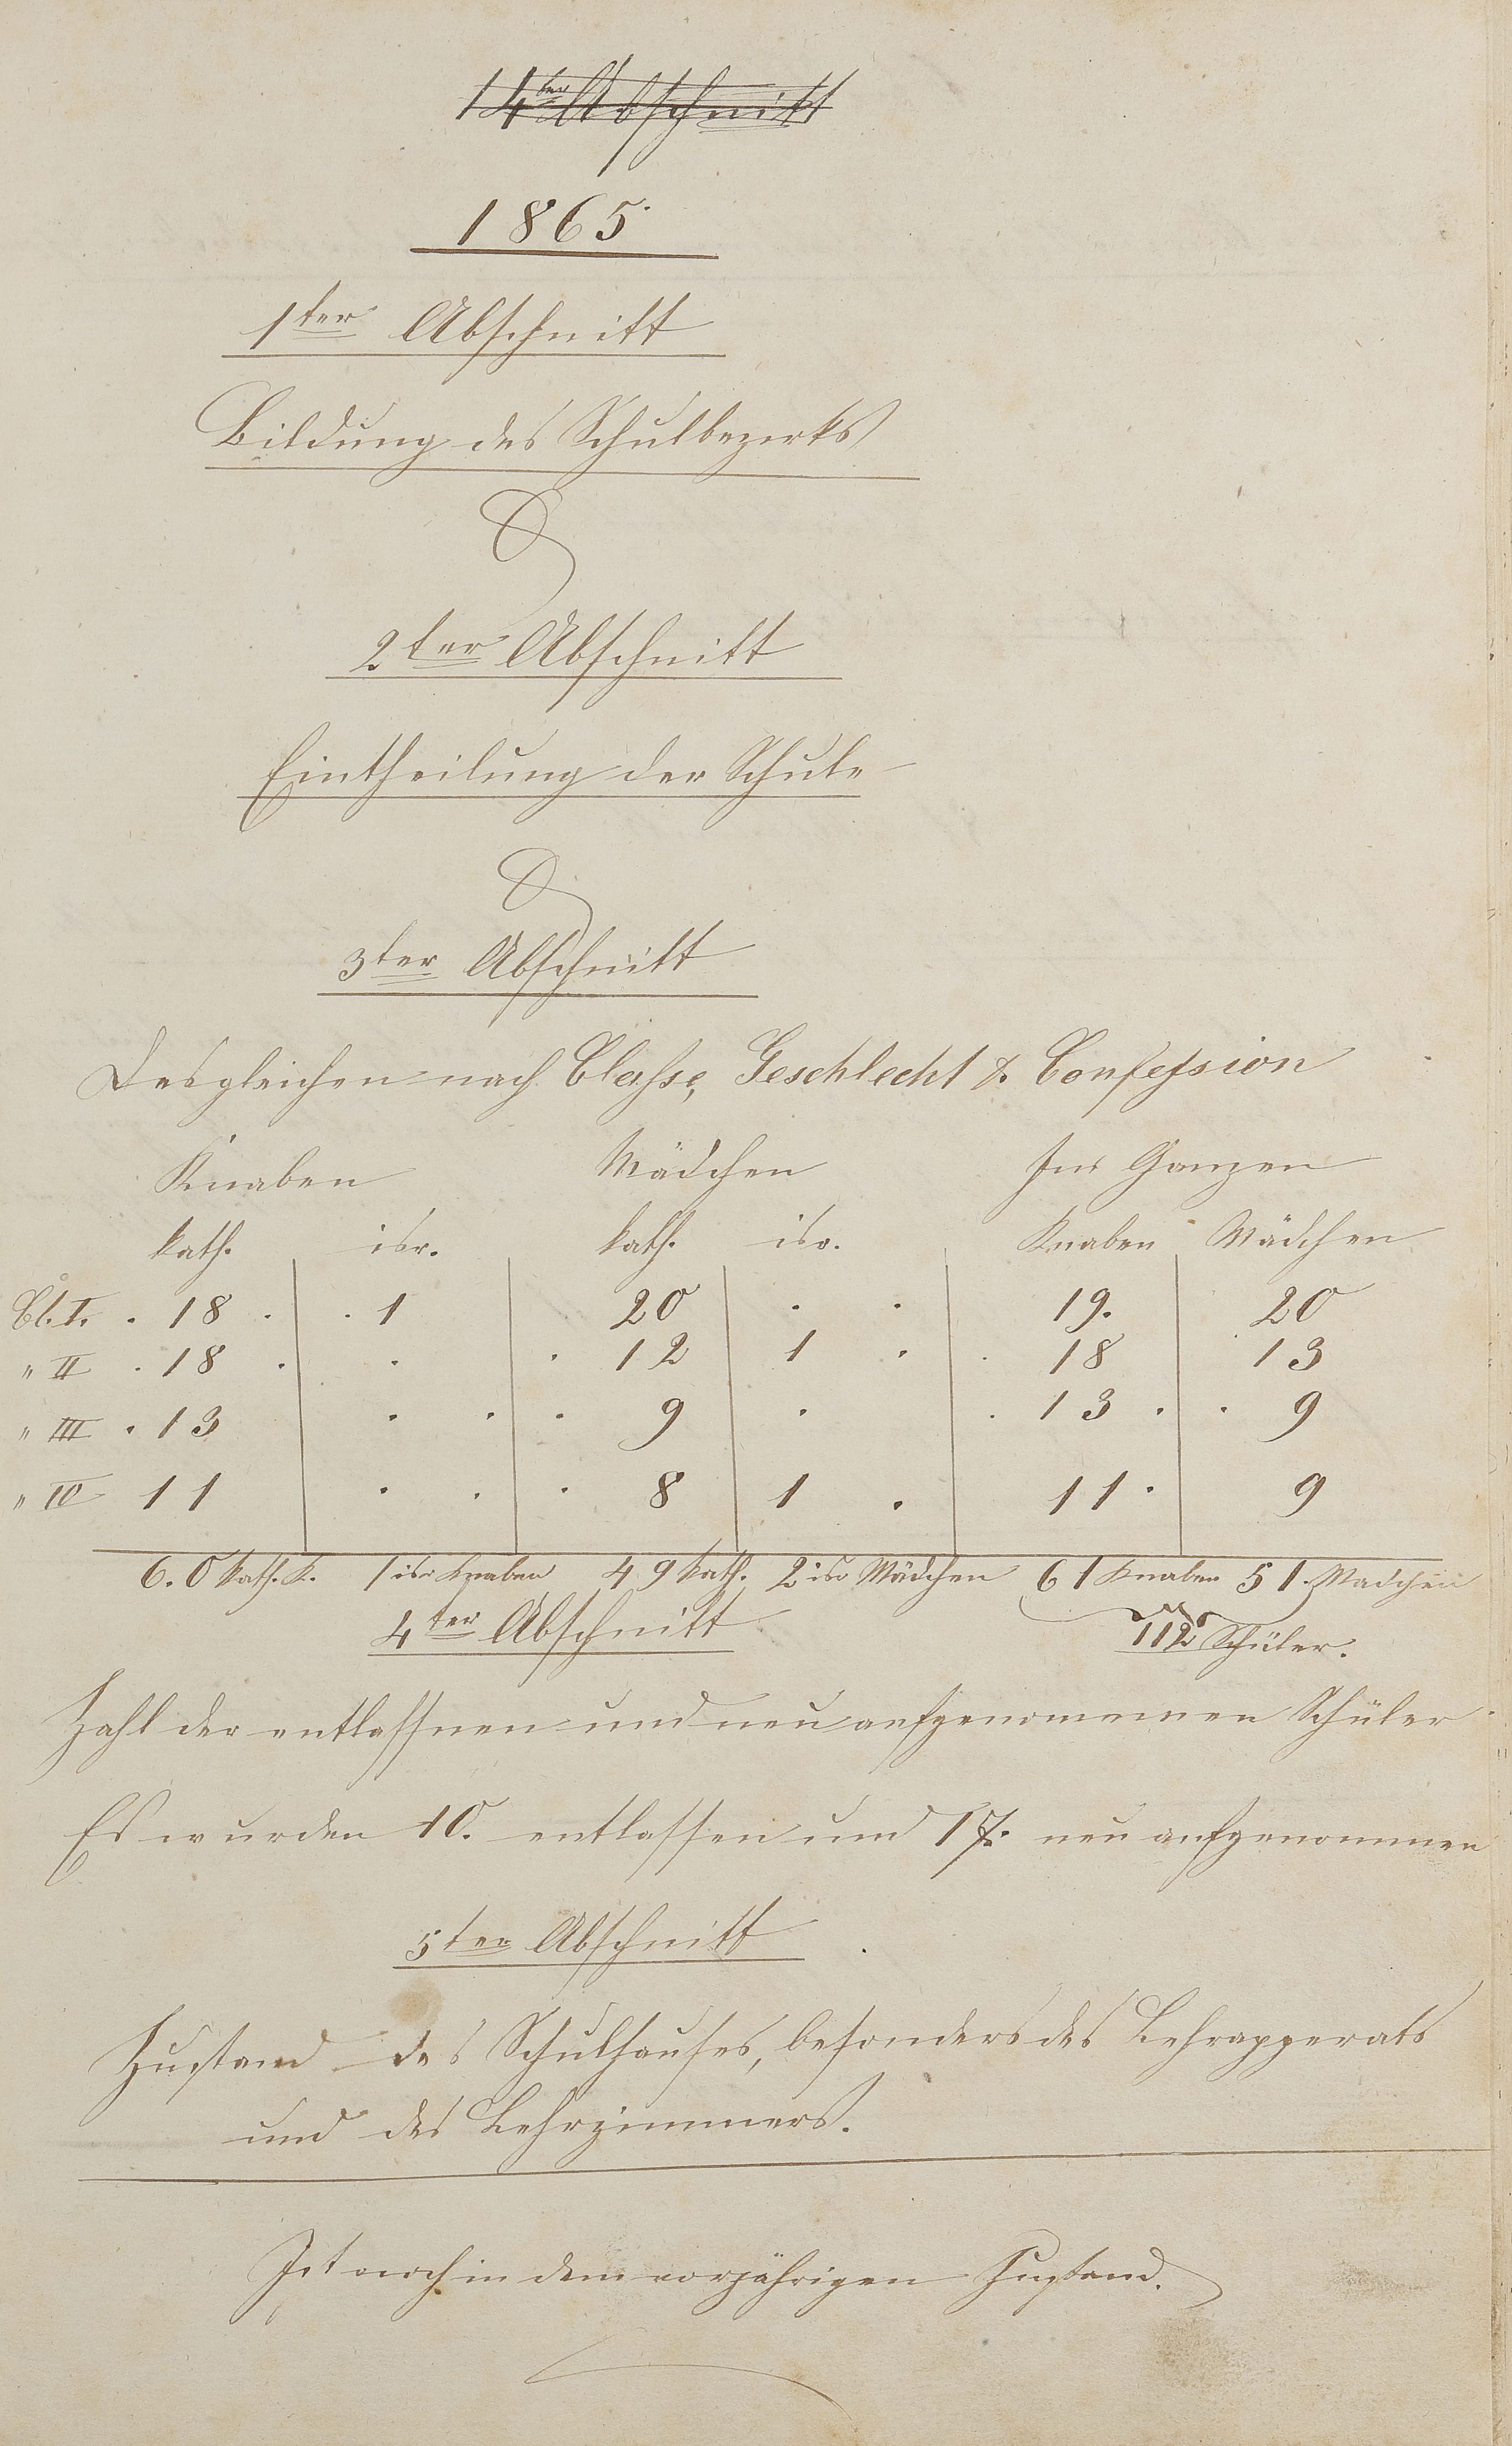 14ter Abschnitt
1865
1ter Abschnitt
Bildung des Schulbezirks
2ter Abschnitt
Eintheilung der Schule
3ter Abschnitt
Desgleichen nach Classe, Geschlecht & Confession
Knaben Mädchen Im Ganzen
kath. isr. kath. isr. Knaben Mädchen
Cl. I. 18 1 20 19. 20
" II 18 12 1 18 13
" III 13 9 13 9
" IV 11 8 1 11 9
6.0 kath. K. 1 isr Knaben 49 kath. 2 isr Mädchen 61 Knaben 51. Mädchen
112 Schüler.
4ter Abschnitt
Zahl der entlassnen und neu aufgenommenen Schüler
Es wurden 10. entlassen und 17. neu aufgenommen
5ter Abschnitt
Zustand des Schulhauses, besonders des Lehrapperats
und des Lehrzimmers.
Ist noch in dem vorjährigen Zustand.